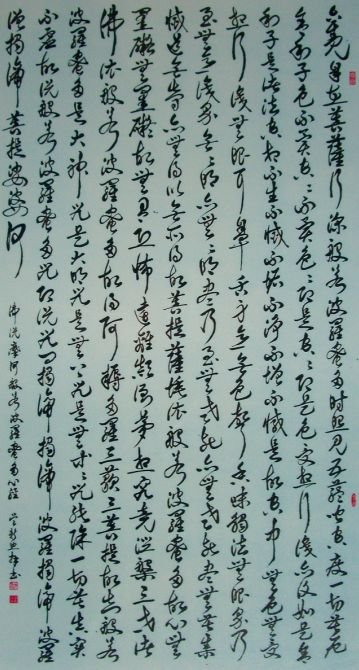 觀自在菩薩行深般若波羅蜜多時照見五蘊皆空度一切苦厄
舍利子色不異空空不異色色即是空空即是色受想行識亦復如是舍
利子是諸法空相不生不滅不垢不淨不增不減是故空中無色無受
想行識無眼耳鼻舌身意無色聲香味觸法無眼界乃
至無意識界無無明亦無無明盡乃至無老死亦無老死盡無苦集
滅道無智亦無得以無所得故菩提薩埵依般若波羅蜜多故心無
罣礙無罣礙故無有恐怖遠離顛倒夢想究竟涅槃三世諸
佛依般若波羅蜜多故得阿耨多羅三藐三菩提故知般若
波羅蜜多是大神咒是大明咒是無上咒是無等等咒能除一切苦真實
不虛故說般若波羅蜜多咒即說咒曰揭諦揭諦波羅揭諦波羅
僧揭諦菩提娑婆訶
佛說摩訶般若波羅蜜多心經